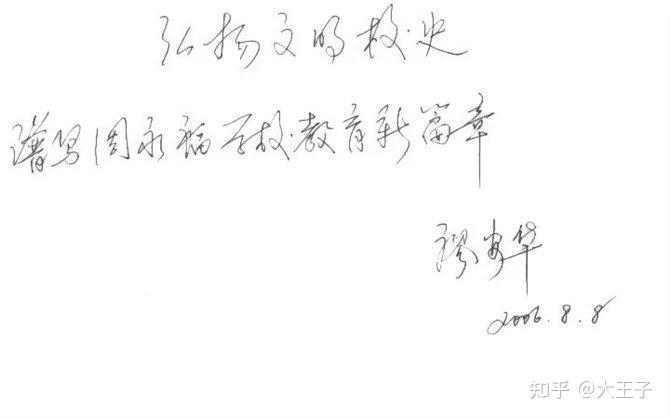 弘扬文明校史
谱写周永福学校教育新篇章
缪安华
2006.8.8
知乎 @大王子